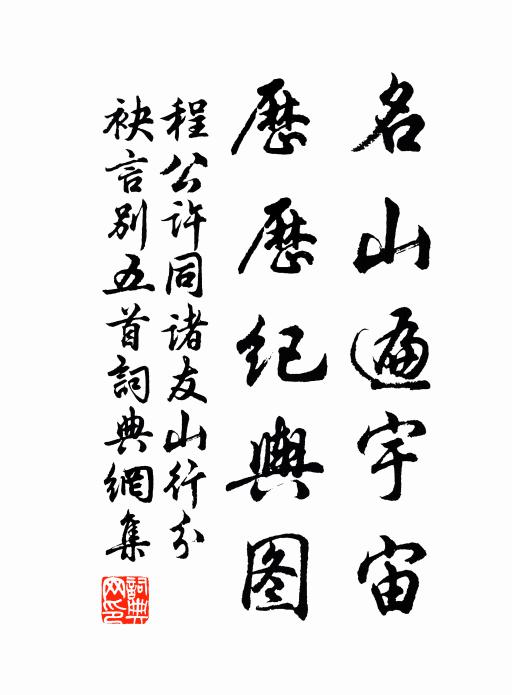 名山遍宇宙
歷歷紀輿图
程公許同諸友山行分
袂言别五首詞典網集
詞典